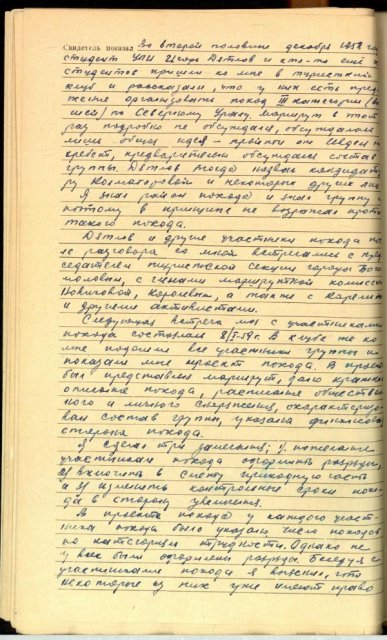 Свидетель показал Во второй половине декабря 1958 год
студент УПИ Игорь Дятлов и кто-то ещё и
студентов пришли ко мне в туристский
клуб и рассказали, что у них есть предл
жение организовать поход III категории (вы
шей) по Северному Уралу. Маршрут в этот
раз подробно не обсуждали, обсуждалась
лишь общая идея - пройти
хребет, предварительно обсуждали состав
группы. Дятлов тогда назвал кандидату
ру Колмогоровой и некоторые другие
Я знал район похода и знал группу
поэтому в принципе не возражал проти
такого похода.
Дятлов и другие участники похода по
ле разговора со мной встретились с пред
седателем туристской секции города Бого
моловым, с членами маршрутной комиссии
Новиковой, Королевым, а также с Карелин
и другими активистами.
Следующая встреча моя с участниками
похода состоялась 8/I-59г. В клубе же ко
мне подошли все участники группы и
показали мне проект похода. В проект
был представлен маршрут, дано кратко
описание похода, расписание обществен
ного и личного снаряжения, охарактеризо
ван состав группы, указана финансова
сторона похода.
Я сделал три замечания: 1) пожелание
участникам похода оформить разряды,
2) включить в смету приходную часть
а 3) изменить контрольные сроки похо
да в сторону увеличения.
В проекте похода у каждого участ-
ника похода было указано число походов
по категориям трудности. Однако не
у всех были оформлены разряды. Беседуя с
участниками похода я выяснил, что
некоторые из них уже имеют право